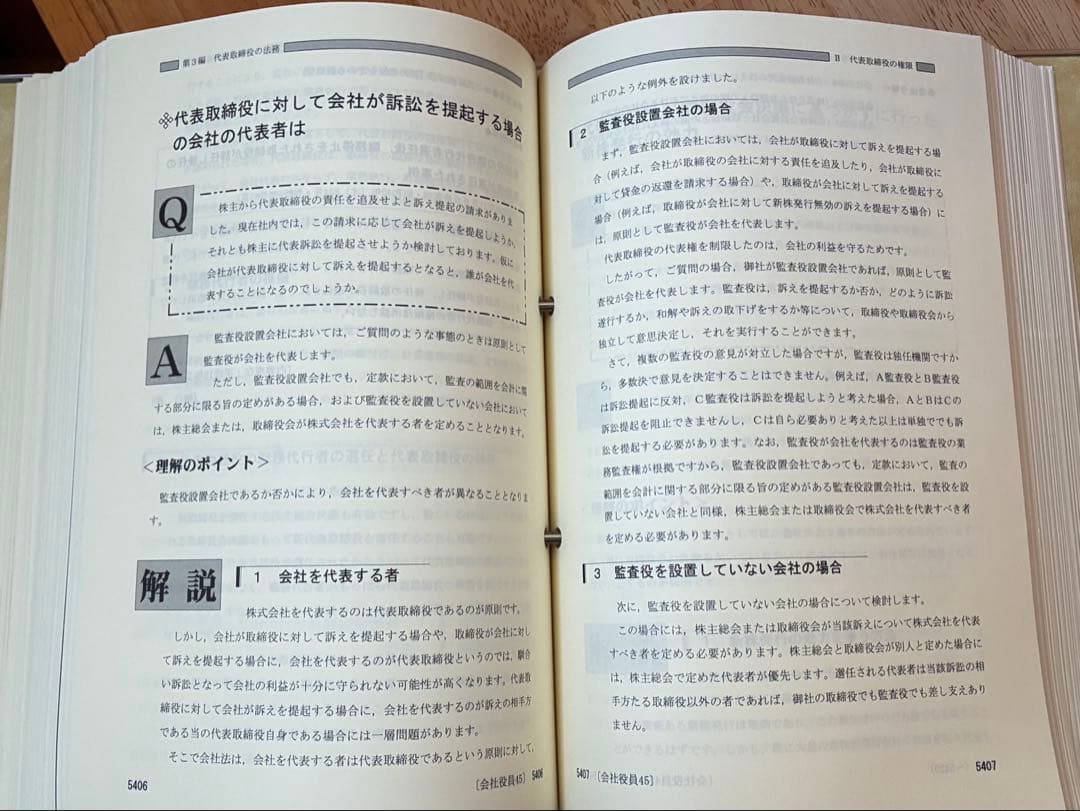 第3編 代表取締役の法務
※代表取締役に対して会社が訴訟を提起する場合
の会社の代表者は
Q
株主から代表取締役の責任を追及せよと訴え提起の請求がありま
した。現在社内では，この請求に応じて会社が訴えを提起しようか，
それとも株主に代表訴訟を提起させようか検討しております。仮に
会社が代表取締役に対して訴えを提起するとなると，誰が会社を代
表することになるのでしょうか。
A
監査役設置会社においては，ご質問のような事態のときは原則として
監査役が会社を代表します。
ただし，監査役設置会社でも，定款において，監査の範囲を会計に関
する部分に限る旨の定めがある場合，および監査役を設置していない会社において
は，株主総会または，取締役会が株式会社を代表する者を定めることとなります。
＜理解のポイント＞
監査役設置会社であるか否かにより，会社を代表すべき者が異なることとなりま
す。
解説
1 会社を代表する者
株式会社を代表するのは代表取締役であるのが原則です。
しかし，会社が取締役に対して訴えを提起する場合や，取締役が会社に対し
て訴えを提起する場合に，会社を代表するのが代表取締役というのでは，馴合
い訴訟となって会社の利益が十分に守られない可能性が高くなります。代表取
締役に対して会社が訴えを提起する場合に，会社を代表するのが訴えの相手方
である当の代表取締役自身である場合には一層問題があります。
そこで会社法は，会社を代表する者は代表取締役であるという原則に対して，
5406
〔会社役員45〕 5406
B 代表取締役の権限
以下のような例外を設けました。
2 監査役設置会社の場合
まず，監査役設置会社においては，会社が取締役に対して訴えを提起する場
合（例えば，会社が取締役の会社に対する責任を追及したり，会社が取締役に
対して貸金の返還を請求する場合）や，取締役が会社に対して訴えを提起する
場合（例えば，取締役が会社に対して新株発行無効の訴えを提起する場合）に
は，原則として監査役が会社を代表します。
代表取締役の代表権を制限したのは，会社の利益を守るためです。
したがって，ご質問の場合，御社が監査役設置会社であれば，原則として監
査役が会社を代表します。監査役は，訴えを提起するか否か，どのように訴訟
遂行するか，和解や訴えの取下げをするか等について，取締役や取締役会から
独立して意思決定し，それを実行することができます。
さて，複数の監査役の意見が対立した場合ですが，監査役は独任機関ですか
ら，多数決で意見を決定することはできません。例えば，A監査役とB監査役
は訴訟提起に反対，C監査役は訴訟を提起しようと考えた場合，AとBはCの
訴訟提起を阻止できませんし，Cは自ら必要ありと考えた以上は単独ででも訴
訟を提起する必要があります。なお，監査役が会社を代表するのは監査役の業
務監査権が根拠ですから，監査役設置会社であっても，定款において，監査の
範囲を会計に関する部分に限る旨の定めがある監査役設置会社は，監査役を設
置していない会社と同様，株主総会または取締役会で株式会社を代表すべき者
を定める必要があります。
3 監査役を設置していない会社の場合
次に，監査役を設置していない会社の場合について検討します。
この場合には，株主総会または取締役会が当該訴えについて株式会社を代表
すべき者を定める必要があります。株主総会と取締役会が別人と定めた場合に
は，株主総会で定めた代表者が優先します。選任される代表者は当該訴訟の相
手方たる取締役以外の者であれば，御社の取締役でも監査役でも差し支えあり
ません。
5407 〔会社役員45〕
5407